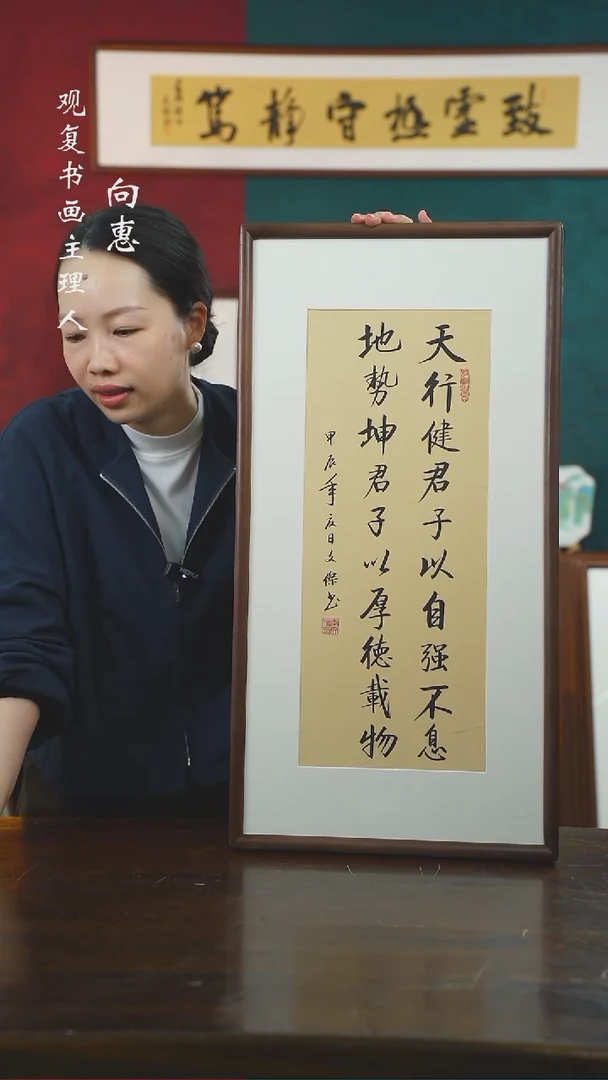 致虚極守静篤
观复书画主理人
向惠
天行健君子以自强不息
地势坤君子以厚德載物
甲辰年夏日文傑书